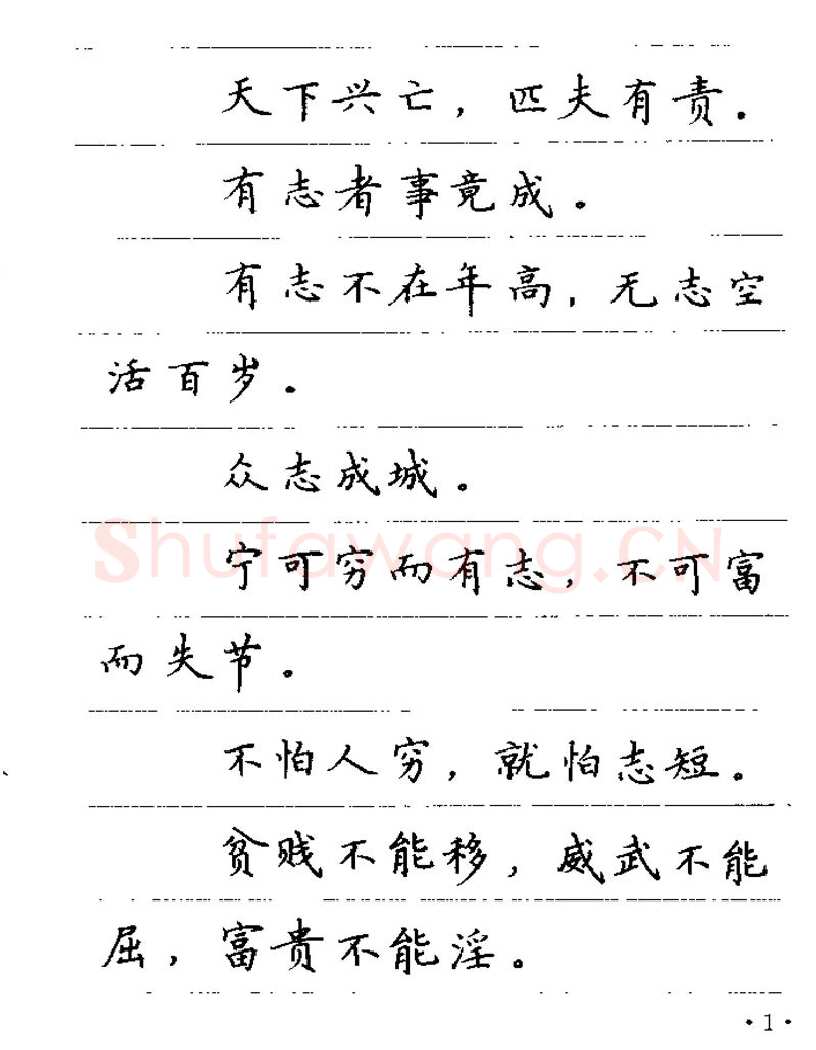 天下兴亡，匹夫有责．
有志者事竟成。
有志不在年高，无志空
活百岁．
众志成城。
宁可穷而有志，不可富
而失节。
不怕人穷，就怕志短。
贫贱不能移，威武不能
屈，富贵不能淫。
Shufawang.CN
·1·